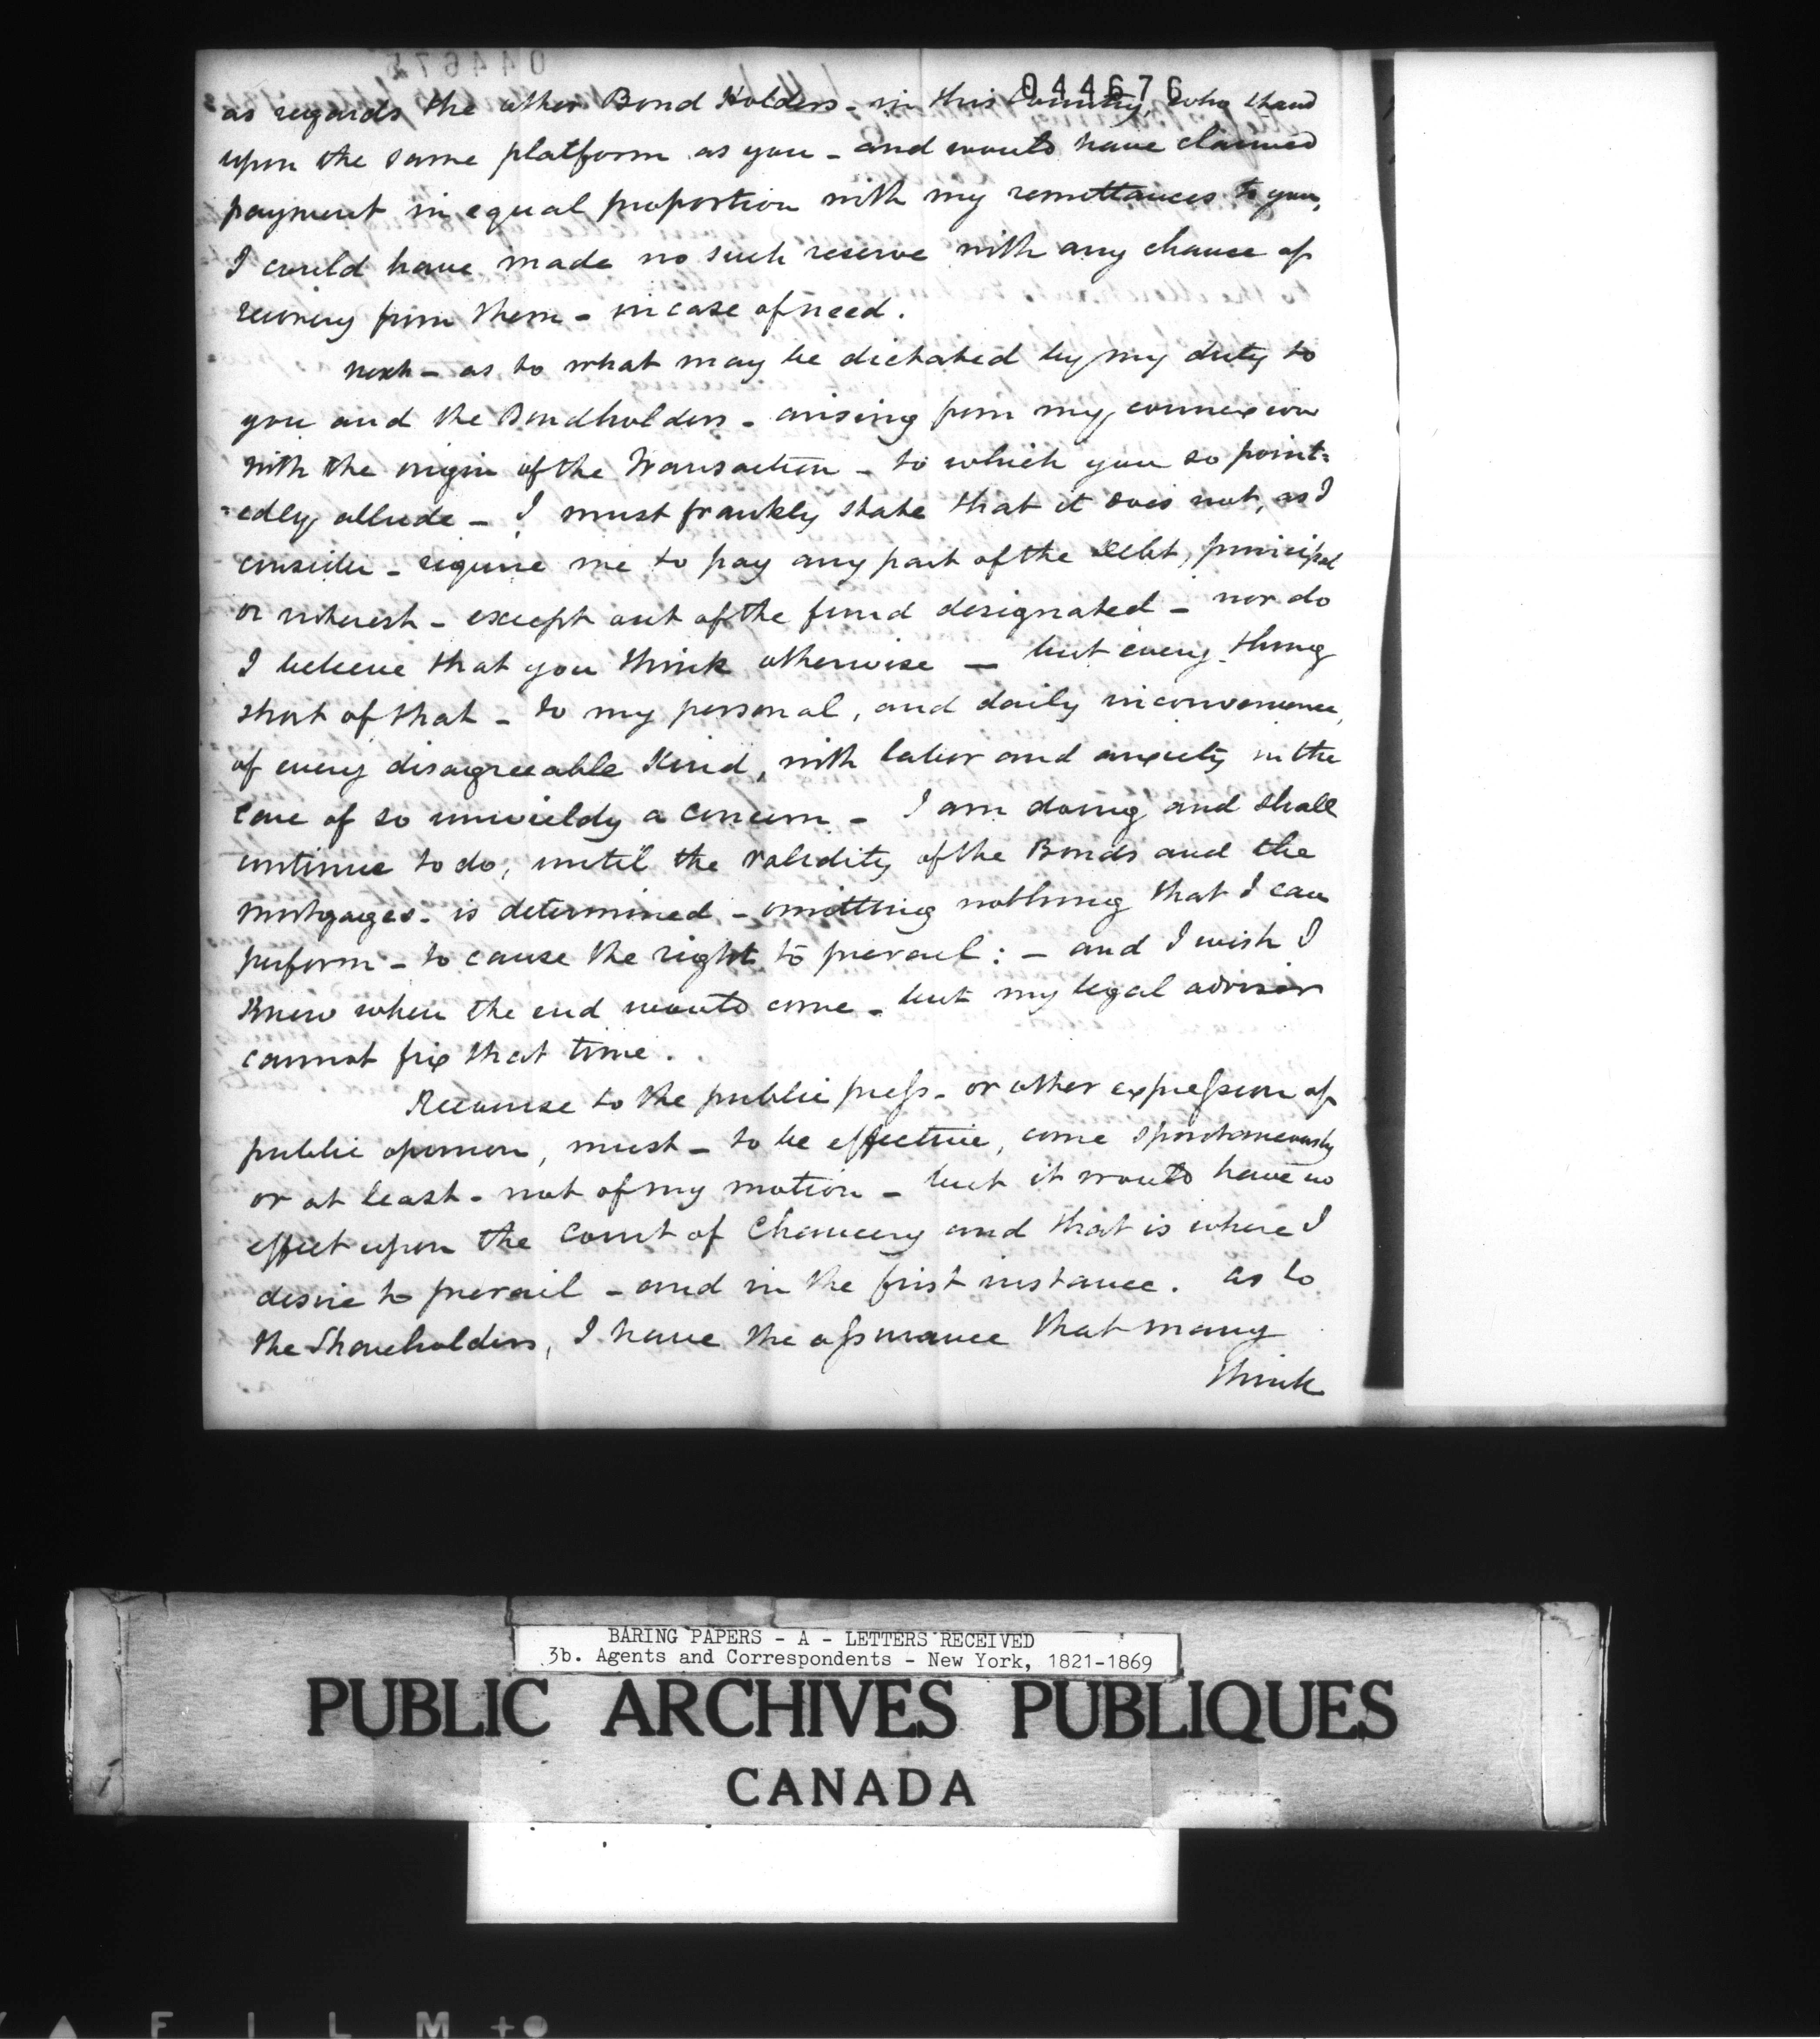 044676
as regards the other Bond Holders - in this Country, who stand
upon the same platform as you - and would have claimed
payment in equal proportion with my remittances to you,
I could have made no such reserve with any chance of
recovery from them - in case of need.
Next - as to what may be dictated by my duty to
you and the Bondholders - arising from my connexion
with the origin of the Transaction - to which you so point=
=edly allude - I must frankly state that it does not, as I
consider - require me to pay any part of the Debt, principal
or interest - except out of the fund designated - nor do
I believe that you think otherwise - but every thing
short of that - to my personal, and daily inconvenience,
of every disagreeable Kind, with labor and anxiety in the
care of so unwieldy a concern - I am doing and shall
continue to do, until the validity of the Bonds and the
mortgages - is determined - omitting nothing that I can
perform - to cause the right to prevail: - and I wish I
Knew when the end would come - but my legal advisor
cannot fix that time.
Recourse to the public press - or other expression of
public opinion, must - to be effective, come spontaneously
or at least - not of my motion - but it would have no
effect upon the Court of Chancery and that is where I
desire to prevail - and in the first instance. As to
the Shareholders, I have the assurance that many
think
BARING PAPERS - A - LETTERS RECEIVED
3b. Agents and Correspondents - New York, 1821-1869
PUBLIC ARCHIVES PUBLIQUES
CANADA
FILM